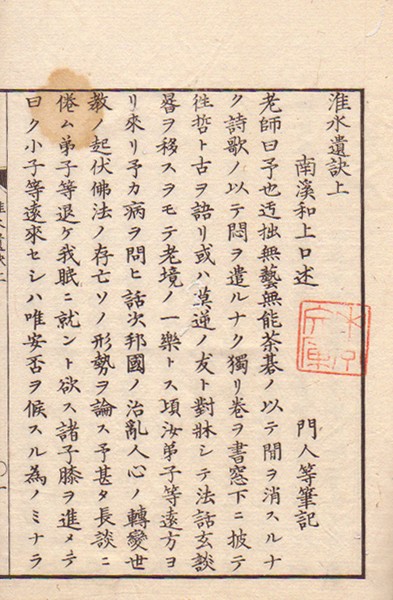 淮水遺訣上
南溪和上口述　門人等筆記
老師曰予也迃拙無藝無能茶碁ノ以テ閒ヲ消スルナ
ク詩歌ノ以テ悶ヲ遣ルナク獨リ卷ヲ書窓下ニ披テ
徃哲ト古ヲ語リ或ハ莫逆ノ友ト對牀シテ法話玄談
晷ヲ移スヲモテ老境ノ一樂トス頃汝弟子等遠方ヨ
リ來リ予カ病ヲ問ヒ話次邦國ノ治亂人心ノ轉變世
教ノ起伏佛法ノ存亡ソノ形勢ヲ論ス予甚タ長談ニ
倦ム弟子等退ケ我眠ニ就ント欲ス諸子膝ヲ進メテ
曰ク小子等遠來セシハ唯安否ヲ候スル為ノミナラ